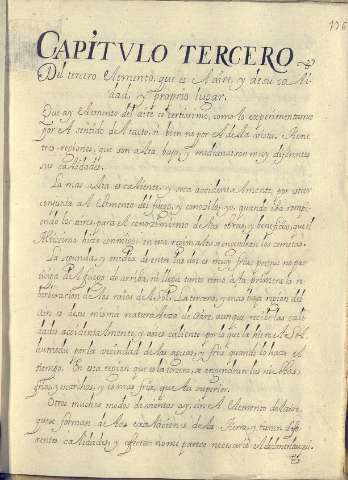 CAPITVLO TERCERO
Del tercero Elemento, que es El aire, y de su cali
dad, y proprio lugar.
Que ay Elemento del aire es certissimo, como lo experimentamos
por El sentido del tacto, si bien no por El de la vista. tiene
tres regiones, que son alta, baja, y mediana son muy diferentes
sus calidades.
La mas alta es caliente, y seca accidentalmente, por estar
conjunta al Elemento del fuego, y
los aires, para El conocimiento de obras, y beneficios, que El
Altissimo en esta region alta se encienden los cometas.
La segunda, y media de entre las dos es muy fria; porque no par
ticipa del fuego de arriba, ni llega tanto como a la primera la re
verberacion de los raios del sol. La tercera, y mas baja region del
aire es de su misma naturaleza de aire, aunque recibe las cali
dades accidentalmente, y a veces caliente por lo que la hiere El sol,
humeda por la vecindad de las aguas, y fria quando lo hace El
tiempo. En esta region que es la tercera, se
y es mas fria, que la superior.
Otros muchos modos de vientos ay, en El Elemento del aire,
que se forman de las exalaciones de la tierra, y tienen dife
rente calidades, y efectos no me parece necessario